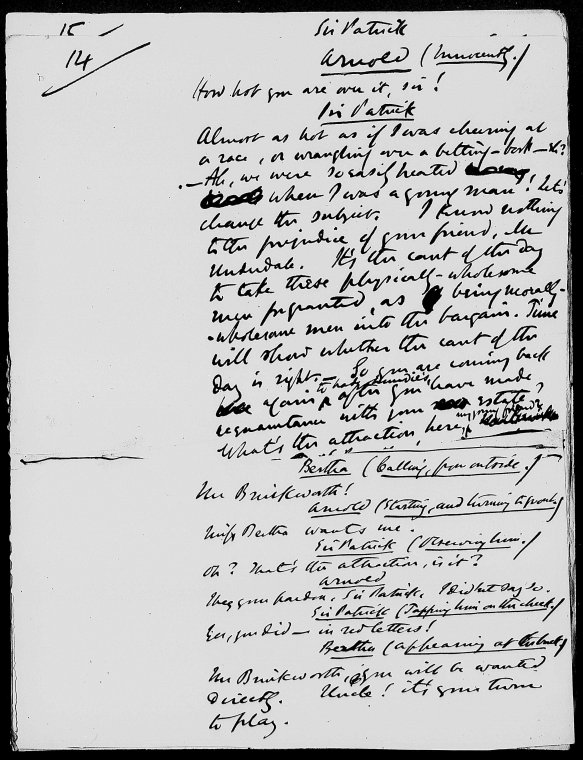 15
14
Sir Patrick
Arnold (Innocently.)
How hot you are over it, sir!
Sir Patrick
Almost as hot as if I was cheering at
a race, or wrangling over a betting-book — eh?
— Ah, we were so easily heated
when I was a young man! Let's
change the subject. I know nothing
to the prejudice of your friend, Mr
It's the cant of the day
to take these physically-wholesome
men for granted, as being morally-
-wholesome men into the bargain. Time
will show whether the cant of the
day is right. — So you are coming back
again to Lady Lundie's after you have made
acquaintance with your estate,
What's the attraction, here,
Bertha (Calling, from outside.)
Mr Brinkworth!
Arnold (Starting, and turning to go out.)
Miss Bertha wants me.
Sir Patrick (Observing him.)
Oh? That's the attraction, is it?
Arnold
I beg your pardon, Sir Patrick. I did not say so.
Sir Patrick (Tapping him on the cheek.)
Yes, you did — in red letters!
Bertha (appearing at the back)
Mr Brinkworth, you will be wanted
directly. Uncle! it's your turn
to play.